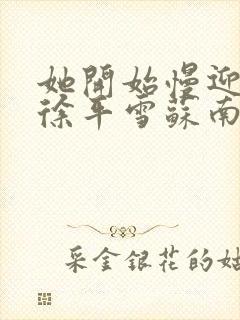 她開始慢迎
徐平雪蘇南
采金銀花的姑